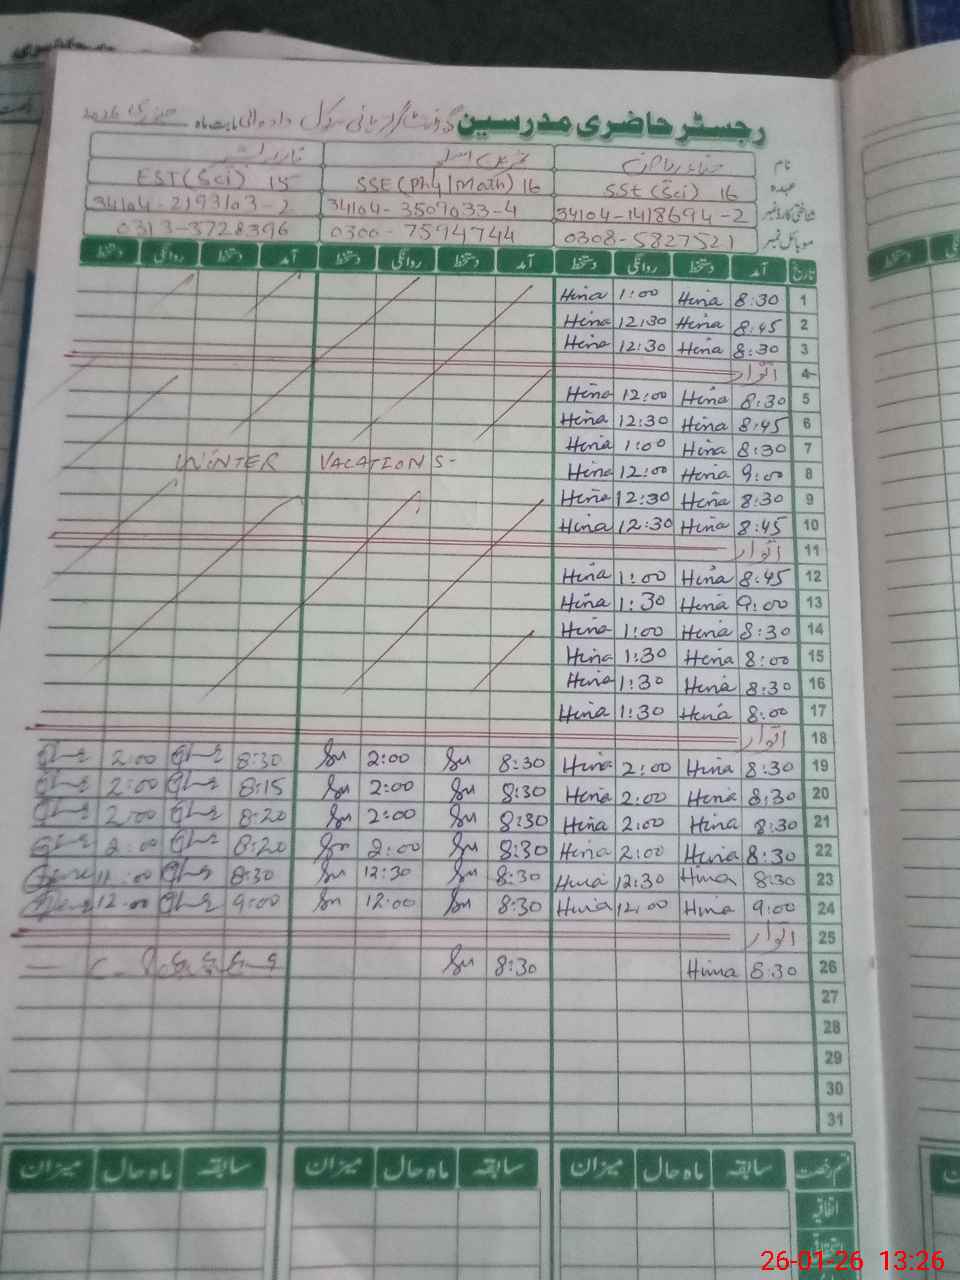 رجسٹر حاضری مدرسین گورنمنٹ گرلز ہائی سکول دادوالی بابت ماہ جنوری 2026
نام
عہدہ SSt (Sci) 16 SSE (Phy/Math) 16 EST (Sci) 15
شناختی کارڈ نمبر 34104-1418694-2 34104-3509033-4 34104-2193103-2
موبائل نمبر 0308-5827521 0300-7594744 0313-3728396
تاریخ آمد دستخط روانگی دستخط آمد دستخط روانگی دستخط آمد دستخط روانگی دستخط
1 8:30 Hina 1:00 Hina
2 8:45 Hina 12:30 Hina
3 8:30 Hina 12:30 Hina
4 اتوار
5 8:30 Hina 12:00 Hina
6 8:45 Hina 12:30 Hina
7 8:30 Hina 1:00 Hina
WINTER VACATIONS-
8 9:00 Hina 12:00 Hina
9 8:30 Hina 12:30 Hina
10 8:45 Hina 12:30 Hina
11 اتوار
12 8:45 Hina 1:00 Hina
13 9:00 Hina 1:30 Hina
14 8:30 Hina 1:00 Hina
15 8:00 Hina 1:30 Hina
16 8:30 Hina 1:30 Hina
17 8:00 Hina 1:30 Hina
18 اتوار
19 8:30 Hina 2:00 Hina 8:30 2:00 8:30 2:00
20 8:30 Hina 2:00 Hina 8:30 2:00 8:15 2:00
21 8:30 Hina 2:00 Hina 8:30 2:00 8:20 2:00
22 8:30 Hina 2:00 Hina 8:30 2:00 8:20 2:00
23 8:30 Hina 12:30 Hina 8:30 12:30 8:30 11:00
24 9:00 Hina 12:00 Hina 8:30 12:00 9:00 12:00
25 اتوار
26 8:30 Hina 8:30
27
28
29
30
31
قسم رخصت سابقہ ماہ حال میزان سابقہ ماہ حال میزان سابقہ ماہ حال میزان
اتفاقیہ
26-01-26 13:26